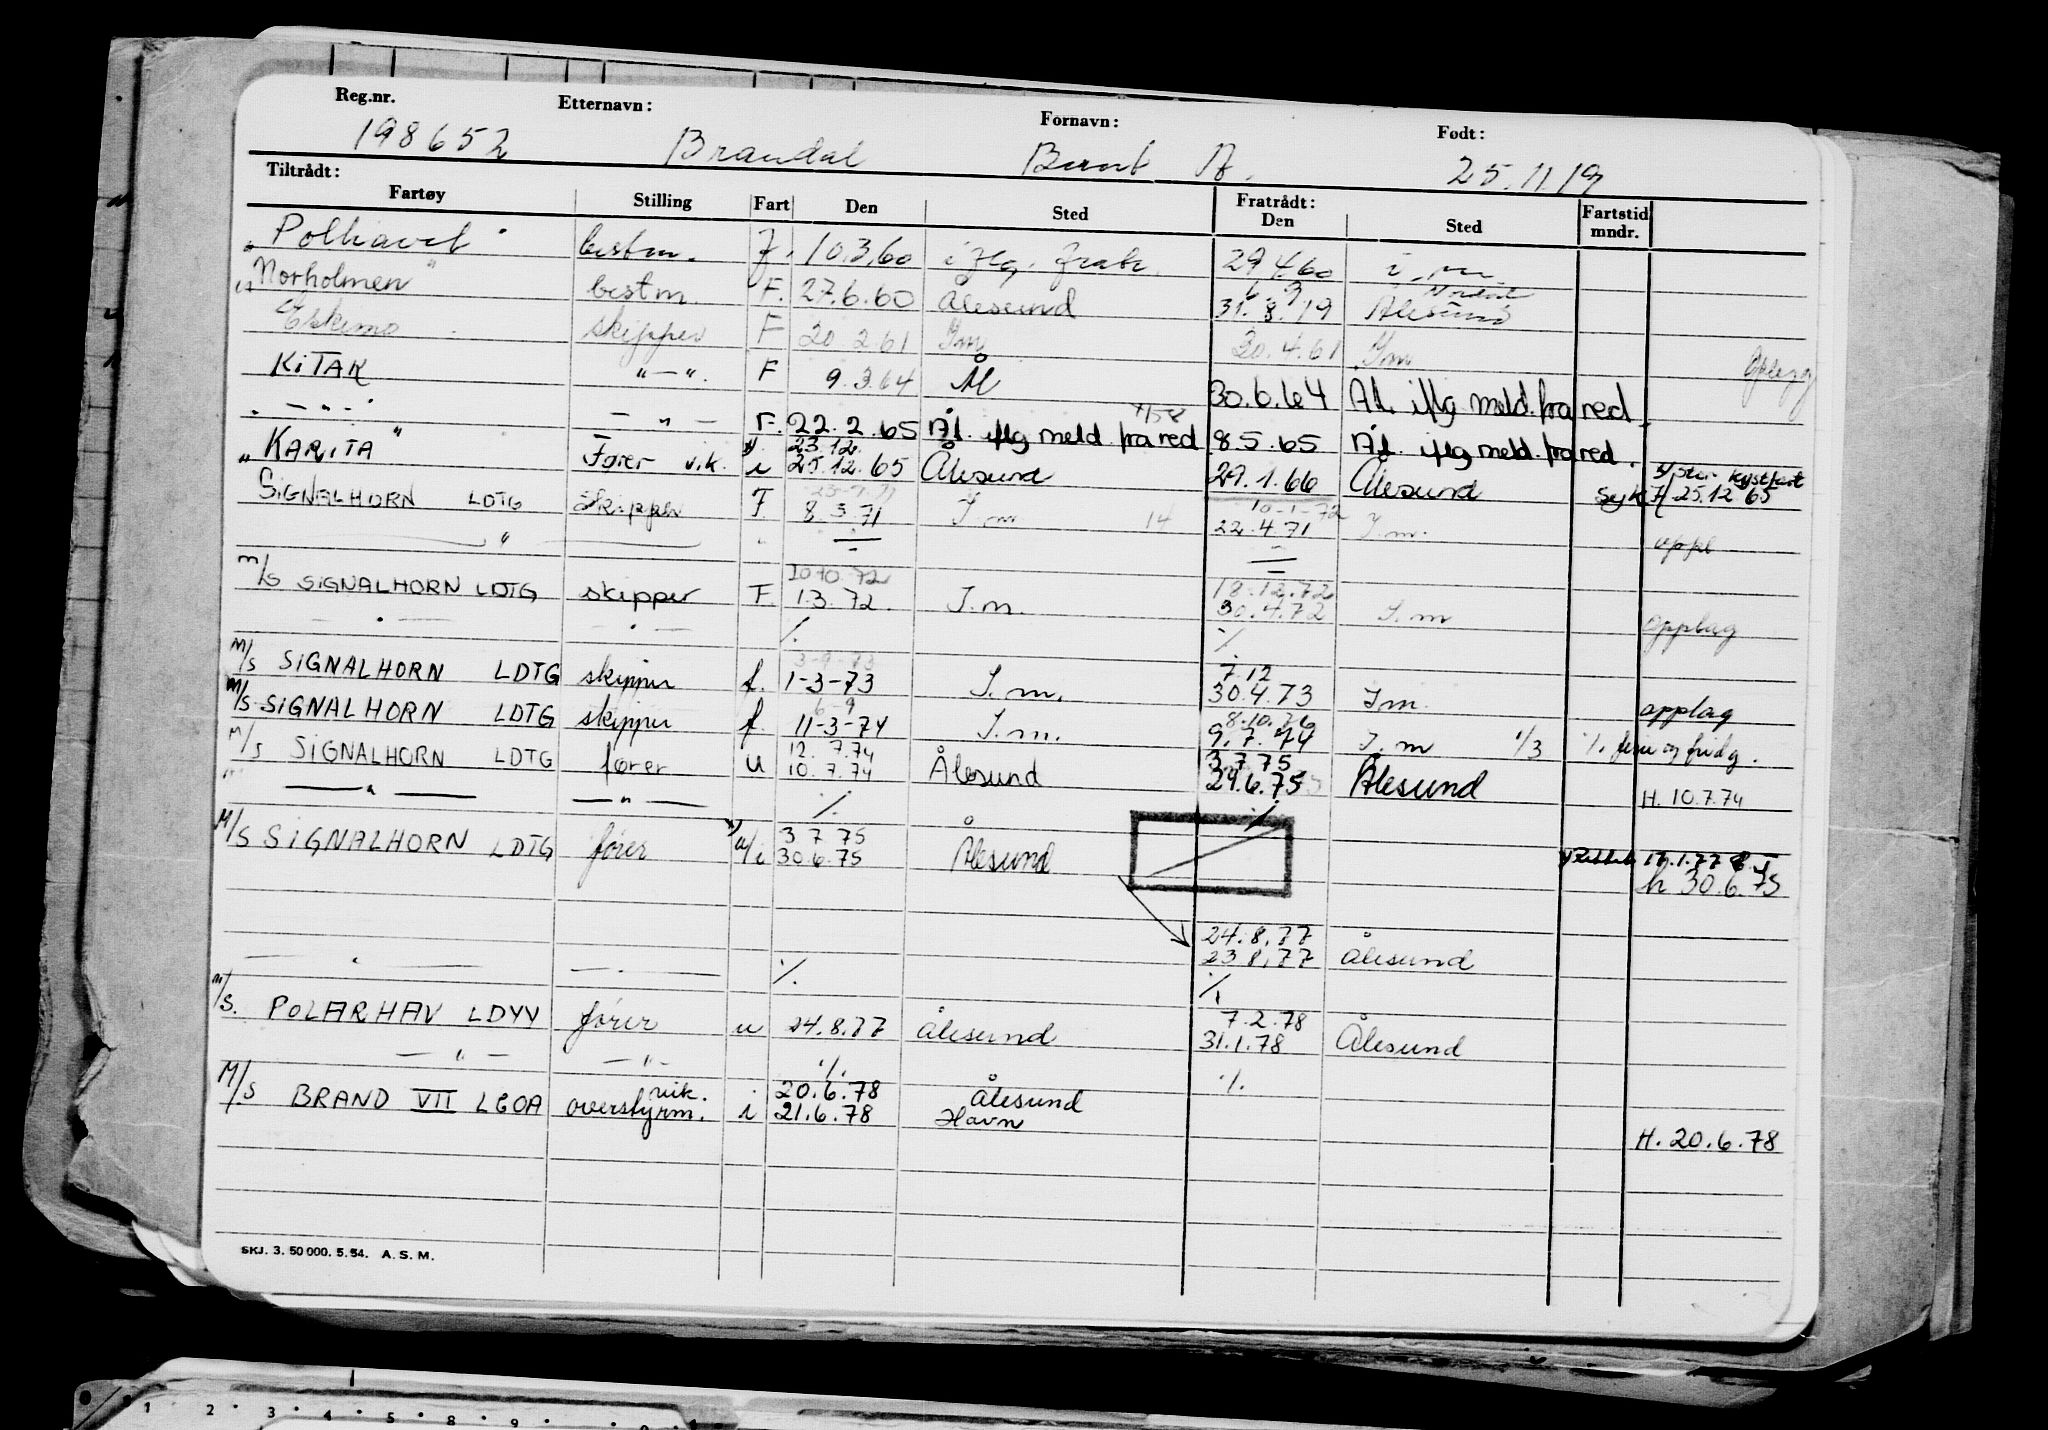 Reg.nr. Etternavn: Fornavn: Født:
198652 Brandal Bernt A. 25.11.19
Tiltrådt: Fratrådt:
Fartøy Stilling Fart Den Sted Den Sted Fartstid mndr.
"Polhavet" bestm. F. 10.3.60 i flg. 29.4.60
"Norholmen" bestm. F. 27.6.60 Ålesund 31.8.19 Ålesund
Eskimo skipper F 20.2.61 I.m 30.4.61 I.m
KITAK " — ". F 9.3.64 Ål 30.6.64 Ål. iflg meld. fra red.
" — " — " — " — F. 22.2.65 Ål. iflg meld. fra red 8.5.65 Ål. iflg meld. fra red.
23.12
"KARITA" Fører vik. i 25.12.65 Ålesund 29.1.66 Ålesund Syk 25.12.65
10-1-72
SIGNALHORN LDTG Skipper F. 8.3.71 I.m 14 22.4.71 I.m. oppl
"
10.10.72 18.12.72
M/S SIGNALHORN LDTG skipper F. 1.3.72. I.m. 30.4.72 I.m opplag
— " — — " — ./. ./.
3-9-73 7.12
M/S SIGNALHORN LDTG skipper f. 1-3-73 I.m. 30.4.73 I.m. opplag
6-9 8.10.76
M/S SIGNALHORN LDTG skipper f. 11-3-74 I.m. 9.7.74 I.m 1/3 ./. ferie og fridg.
12.7.74 3.7.75
M/S SIGNALHORN LDTG fører u 10.7.74 Ålesund 29.6.75 Ålesund H. 10.7.74
— " — — " — ./. ./.
3 7 75
M/S SIGNALHORN LDTG fører u/i 30.6.75 Ålesund h 30.6.75
24.8.77
23.8.77 Ålesund
— " — — " — ./. ./.
7.2.78
M/S. POLARHAV LDYV fører u 24.8.77 Ålesund 31.1.78 Ålesund
— " — — " — ./. ./.
vik. 20.6.78 Ålesund
M/S BRAND VII LGOA overstyrm. i 21.6.78 Havn H. 20.6.78
SKJ. 3. 50 000. 5. 54. A. S. M.
1 2 3 4 5 8 9